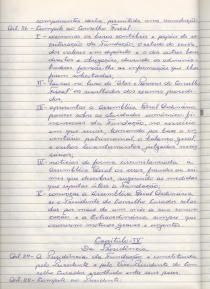 componentes serão permitida uma recondução
Art. 21 - Compete ao Conselho Fiscal:
I - examinar os livros contábeis e papéis de es-
crituração da Fundação, o estado do caixa,
dos valores em depósito
devendo os adminis-
tradores fornecer-lhe as informações que lhe
forem solicitadas;
II - lavrar no livro de "Atas e Pareceres do Conselho
Fiscal" os resultados dos exames procedi-
dos;
III - apresentar à Assembléia Geral Ordinária
parecer sobre as atividades econômicas fi-
nanceiras da Fundação, no exercício
em que servir, tomando por base o in-
ventário patrimonial, o balanço geral
e outros levantamentos julgados neces-
sários;
IV - noticiar de forma circunstanciada a
Assembléia Geral os erros, fraudes ou cri-
mes que descobrir, sugerindo as medidas
que reputar úteis à Fundação;
V - convocar a Assembléia Geral Ordinária
se o Presidente do Conselho Curador retar-
dar por mais de um mês a sua convo-
cação e a Extraordinária sempre que
ocorrerem motivos graves e urgentes.
Capítulo IV
Da Presidência
A Presidência da Fundação é constituída
pelo Presidente e pelo Vice-Presidente do Con-
selho Curador escolhido entre seus pares.
Compete ao Presidente: